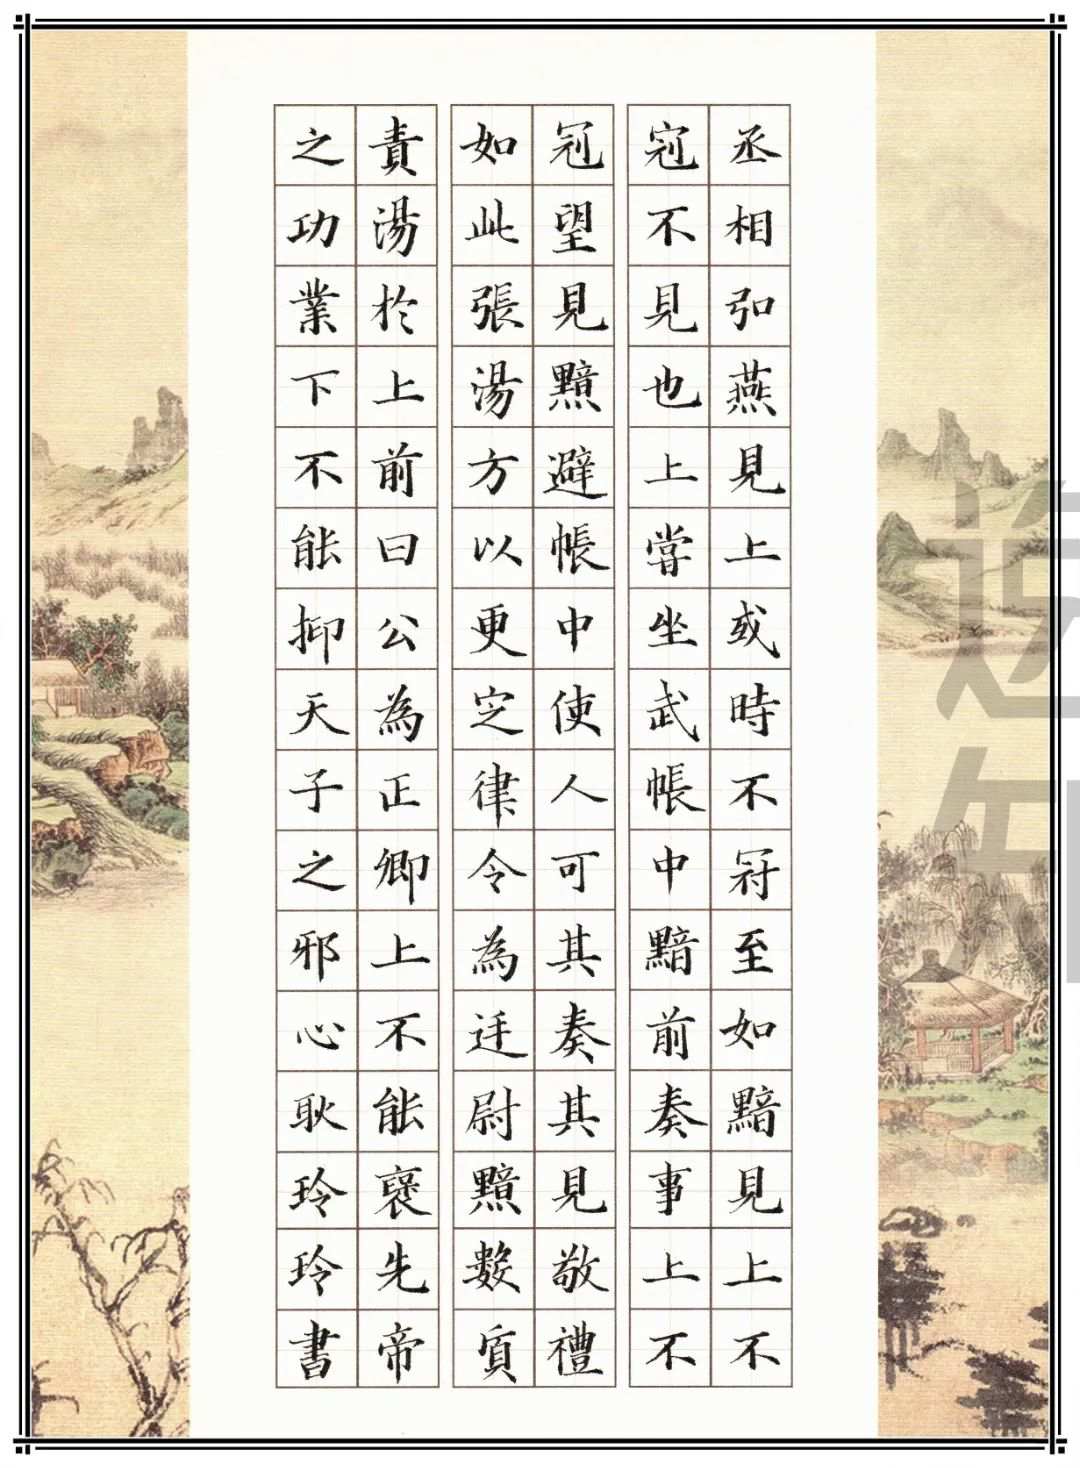 丞相弘燕見上或時不冠至如黯見上不
冠不見也上嘗坐武帳中黯前奏事上不
冠望見黯避帳中使人可其奏其見敬禮
如此張湯方以更定律令為廷尉黯數質
責湯於上前曰公為正卿上不能褒先帝
之功業下不能抑天子之邪心耿玲玲書